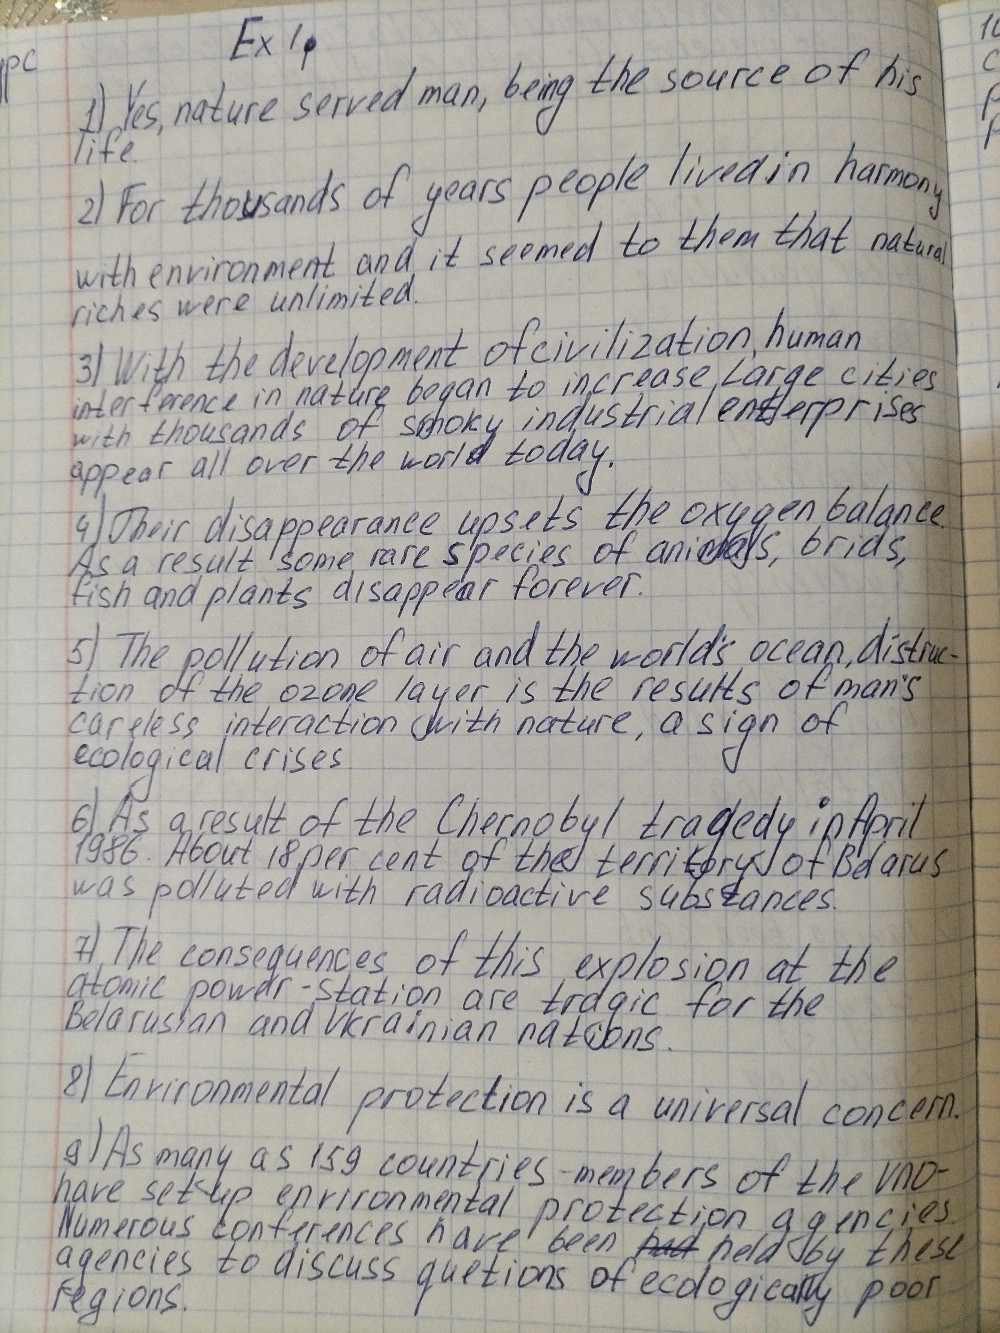 Ex 1,
1) Yes, nature served man, being the source of his
life.
2) For thousands of years people lived in harmony
with environment and it seemed to them that natural
riches were unlimited.
3) With the development of civilization, human
interference in nature began to increase, Large cities
with thousands of smoky industrial enterprises
appear all over the world today.
4) Their disappearance upsets the oxygen balance.
As a result some rare species of animals, brids,
fish and plants disappear forever.
5) The pollution of air and the world's ocean, distruc-
tion of the ozone layer is the results of man's
careless interaction with nature, a sign of
ecological crises
6) As a result of the Chernobyl tragedy in April
1986. About 18 per cent of the territory of Belarus
was polluted with radioactive substances.
7) The consequences of this explosion at the
atomic power-station are tragic for the
Belarusian and Ukrainian nations.
8) Environmental protection is a universal concern.
9) As many as 159 countries-members of the UNO-
have set up environmental protection agencies.
Numerous conferences have been held by these
agencies to discuss quetions of ecologically poor
regions.